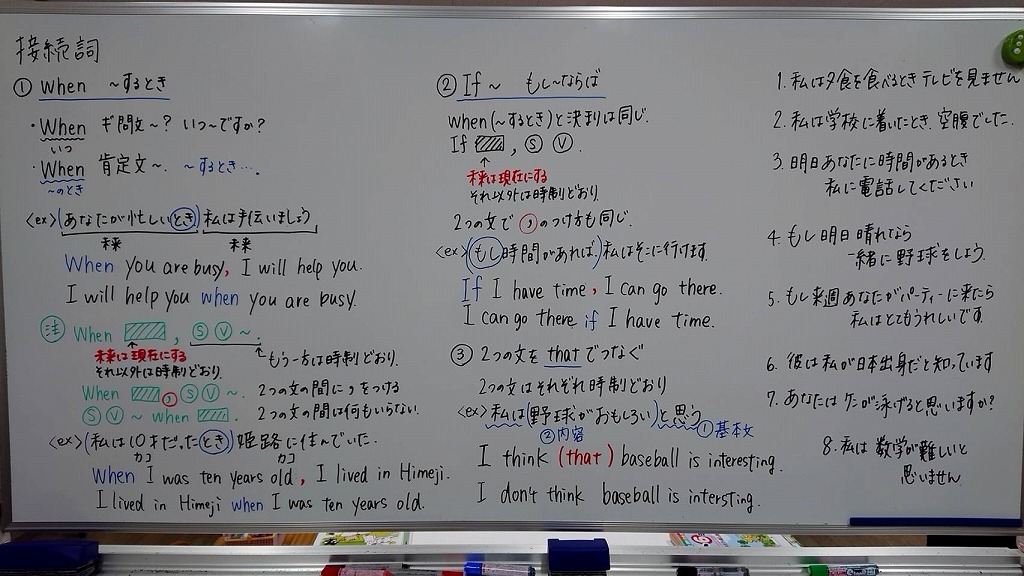 接続詞
① When 〜するとき
・When ギ問文〜? いつ〜ですか?
いつ
・When 肯定文〜. 〜するとき….
〜のとき
<ex> (あなたが忙しいとき) 私は手伝いましょう
未来 未来
When you are busy, I will help you.
I will help you when you are busy.
注 When , Ⓢ Ⓥ 〜.
未来は現在にする もう一方は時制どおり.
それ以外は時制どおり.
When , Ⓢ Ⓥ 〜. 2つの文の間に , をつける
Ⓢ Ⓥ 〜 when . 2つの文の間は何もいらない.
<ex> (私は10才だったとき) 姫路に住んでいた.
カコ カコ
When I was ten years old, I lived in Himeji.
I lived in Himeji when I was ten years old.
② If〜 もし〜ならば
when (〜するとき) と決まりは同じ.
If , Ⓢ Ⓥ .
未来は現在にする
それ以外は時制どおり.
2つの文で , のつけ方も同じ.
<ex> (もし時間があれば) 私はそこに行けます.
If I have time, I can go there.
I can go there if I have time.
③ 2つの文を that でつなぐ
2つの文はそれぞれ時制どおり
<ex> 私は (野球がおもしろい) と思う
②内容 ①基本文
I think (that) baseball is interesting.
I don't think baseball is intersting.
1. 私は夕食を食べるとき テレビを見ません
2. 私は学校に着いたとき, 空腹でした.
3. 明日あなたに時間があるとき
私に電話してください
4. もし明日晴れなら
一緒に野球をしよう.
5. もし来週あなたがパーティーに来たら
私はとてもうれしいです
6. 彼は私が日本出身だと知っています
7. あなたはケンが泳げると思いますか?
8. 私は数学が難しいと
思いません